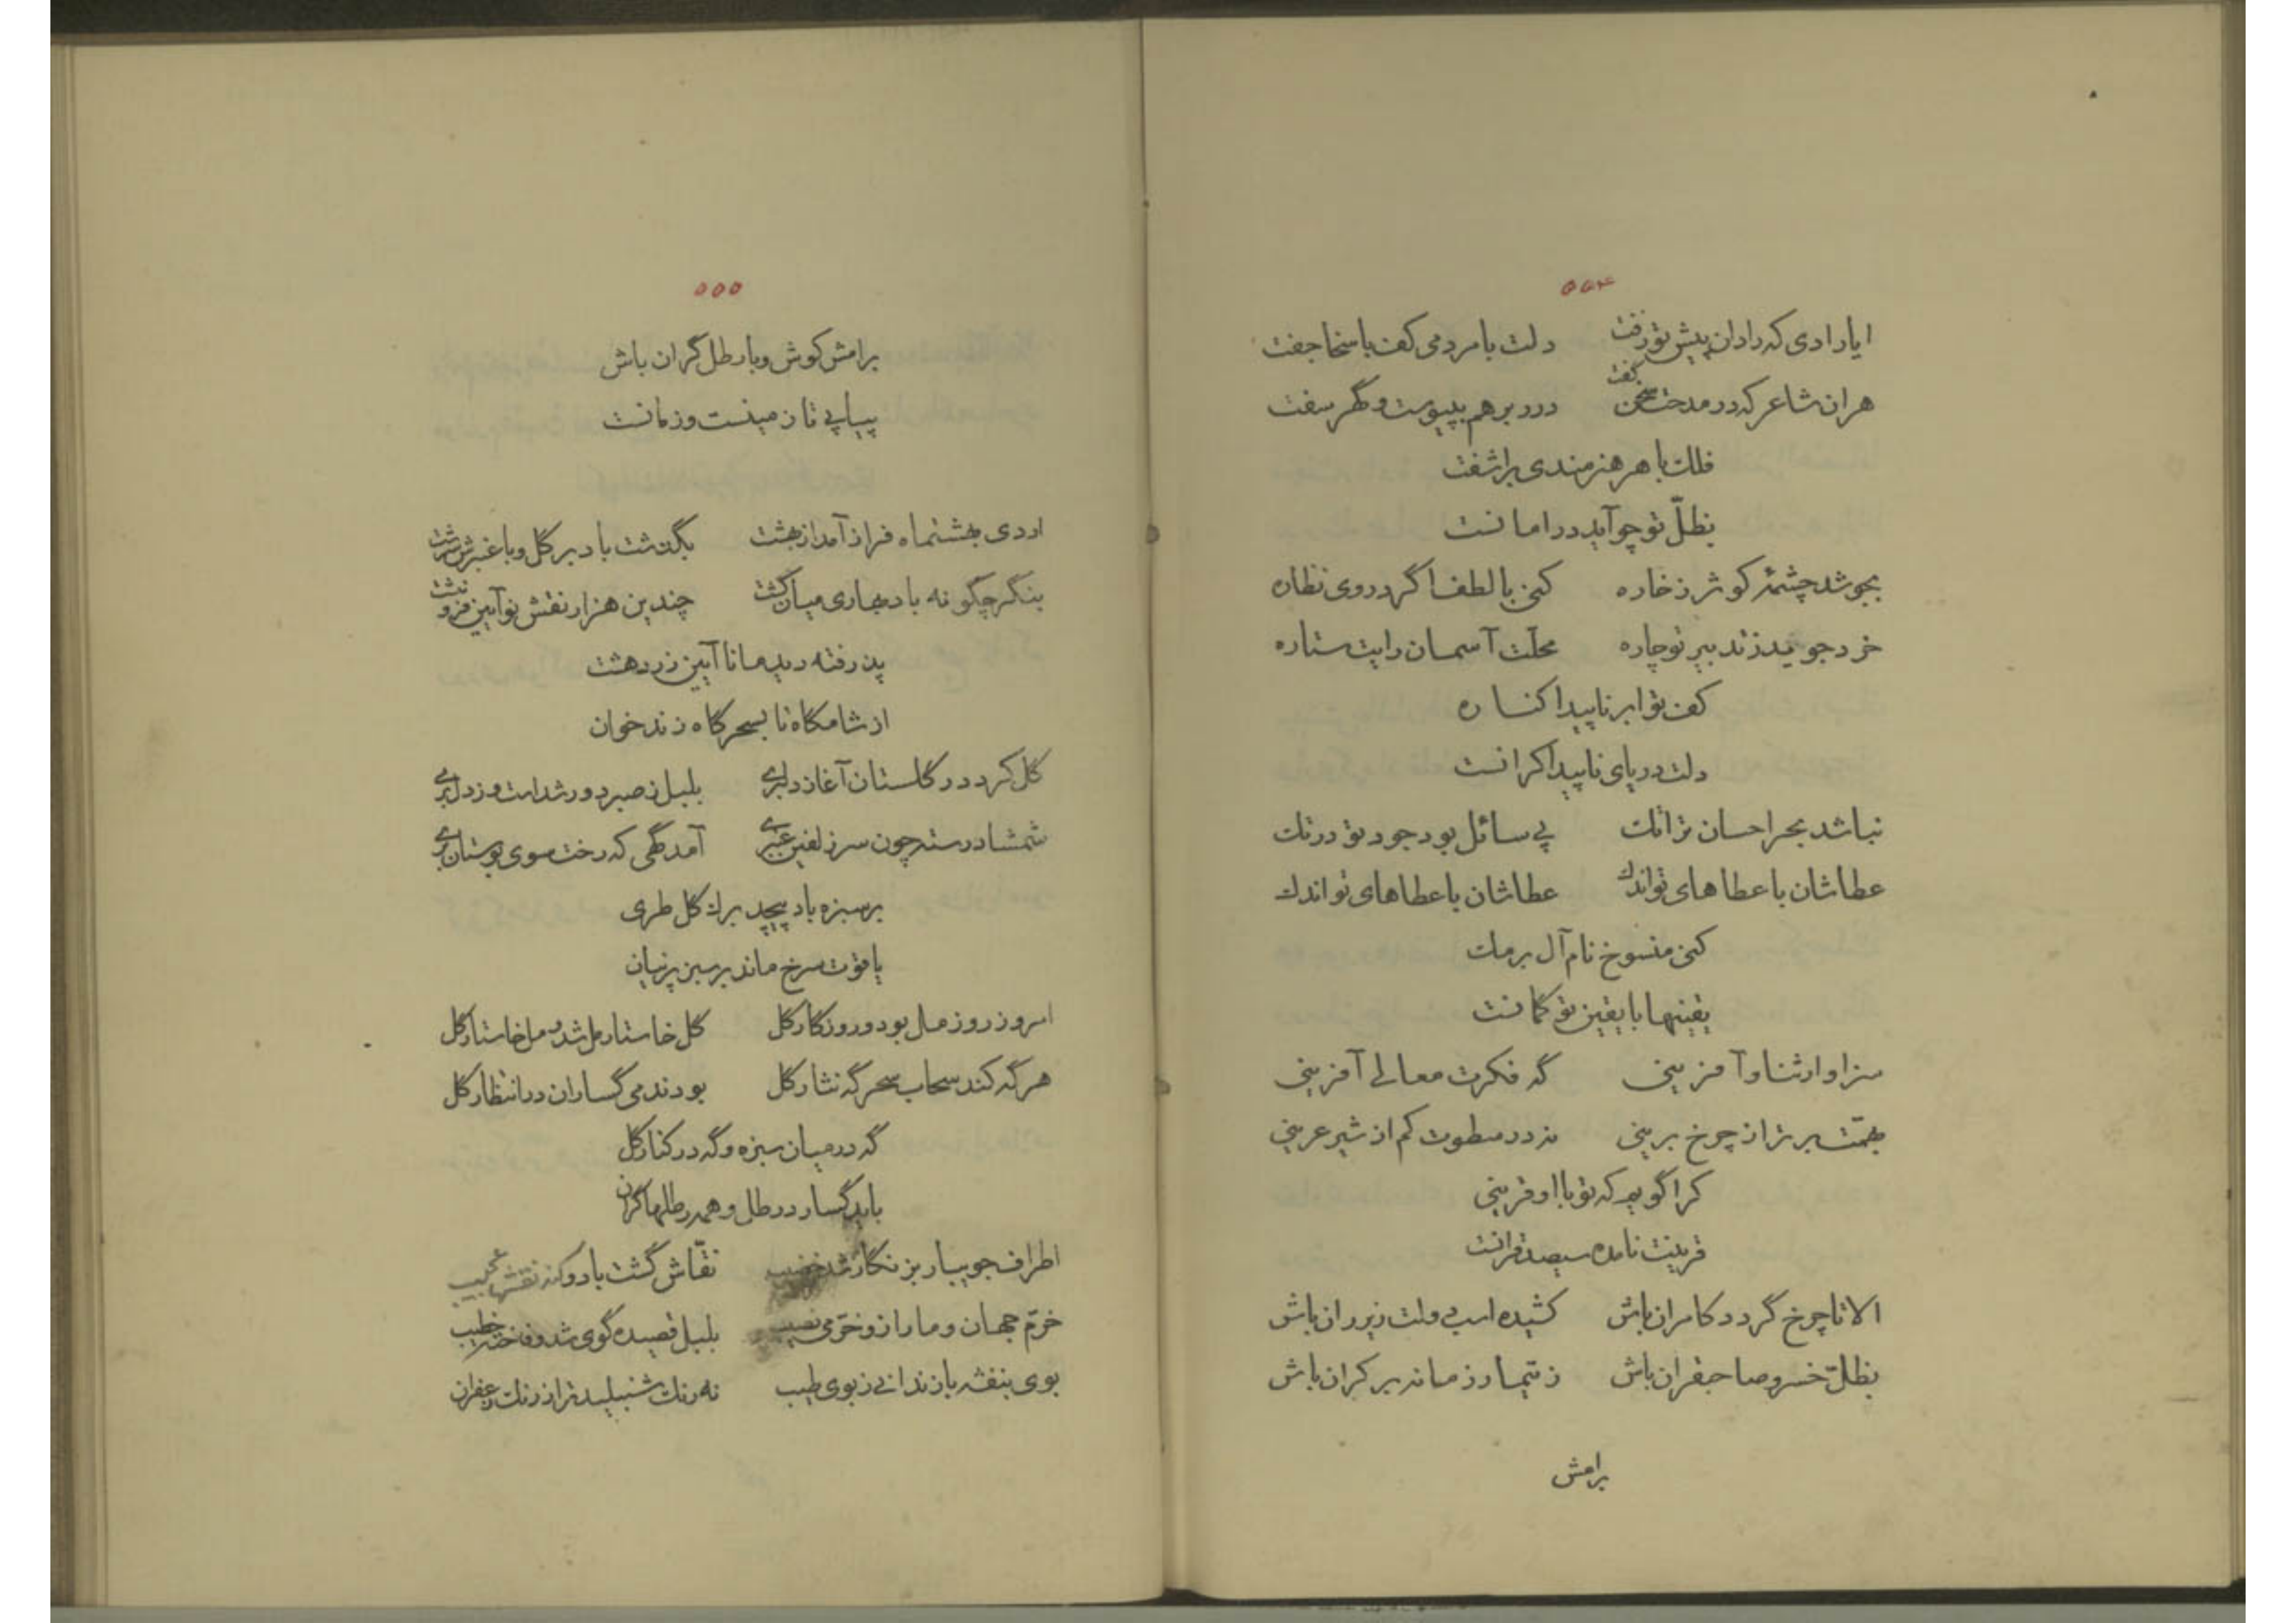 ۵۵۴
ایا رادی که رادان پیش تو زفت دلت با مردمی کف با سخا جفت
هران شاعر که در مدحت سخن گفت درر بر هم بپیوست و گهر سفت
فلک با هر هنرمندی براشفت
بظلّ تو چو آید در امانست
بجوشد چشمهٔ کوثر ز خاره کنی با لطف اگر در وی نظاره
خرد جوید ز تدبیر تو چاره محلت آسمان رایت ستاره
کف تو ابر ناپیدا کناره
دلت دریای ناپیدا کرانست
نباشد بحر احسان ترا تک پی سائل بود جود تو در تک
عطاشان با عطاهای تو اندک عطاشان با عطاهای تو اندک
کنی منسوخ نام آل برمک
یقینها با یقین تو گمانست
سزاوار ثنا و آفرینی گه فکرت معالی آفرینی
بهمّت برتر از چرخ برینی نه در سطوت کم از شیر عرینی
کرا گویم که تو با او قرینی
قرینت نامده سیصد قرانست
الا تا چرخ گردد کامران باش کشیده اسب دولت زیر ران باش
بظلّ خسرو صاحبقران باش ز تیمار زمانه بر کران باش
برامش
۵۵۵
برامش کوش و با رطل گران باش
پیاپی تا زمینست و زمانست
اردی بهشتماه فراز آمد از بهشت بگذشت باد بر گل و با عنبرش سرشت
بنگر چگونه باد بهاری میان کشت چندین هزار نقش نو آیین فرو نبشت
پذرفته دید مانا آیین زردهشت
از شامگاه تا بسحرگاه زند خوان
گل کرد در گلستان آغاز دلبری بلبل ز صبر دور شد است و ز دل بری
شمشاد رسته چون سر زلفین عنبری آمد گهی که رخت سوی بوستان بری
بر سبزه باد پیچد برگ گل طری
یاقوت سرخ ماند بر سبز پرنیان
امروز روز مل بود و روزگار گل گل خاستار مل شد و مل خاستار گل
هر گه کند سحاب سحرگه نثار گل بودند می گساران در انتظار گل
گه در میان سبزه و گه در کنار گل
باید گسارد رطل و همه رطلها گران
اطراف جویبار بزنگار شد خضیب نقّاش گشت باد و کند نقشها عجیب
خرّم جهان و ما را زو خرّمی نصیب بلبل قصیده گوی شد و فاخته خطیب
بوی بنفشه باز ندانی ز بوی طیب نه رنگ شنبلید تر از رنگ زعفران